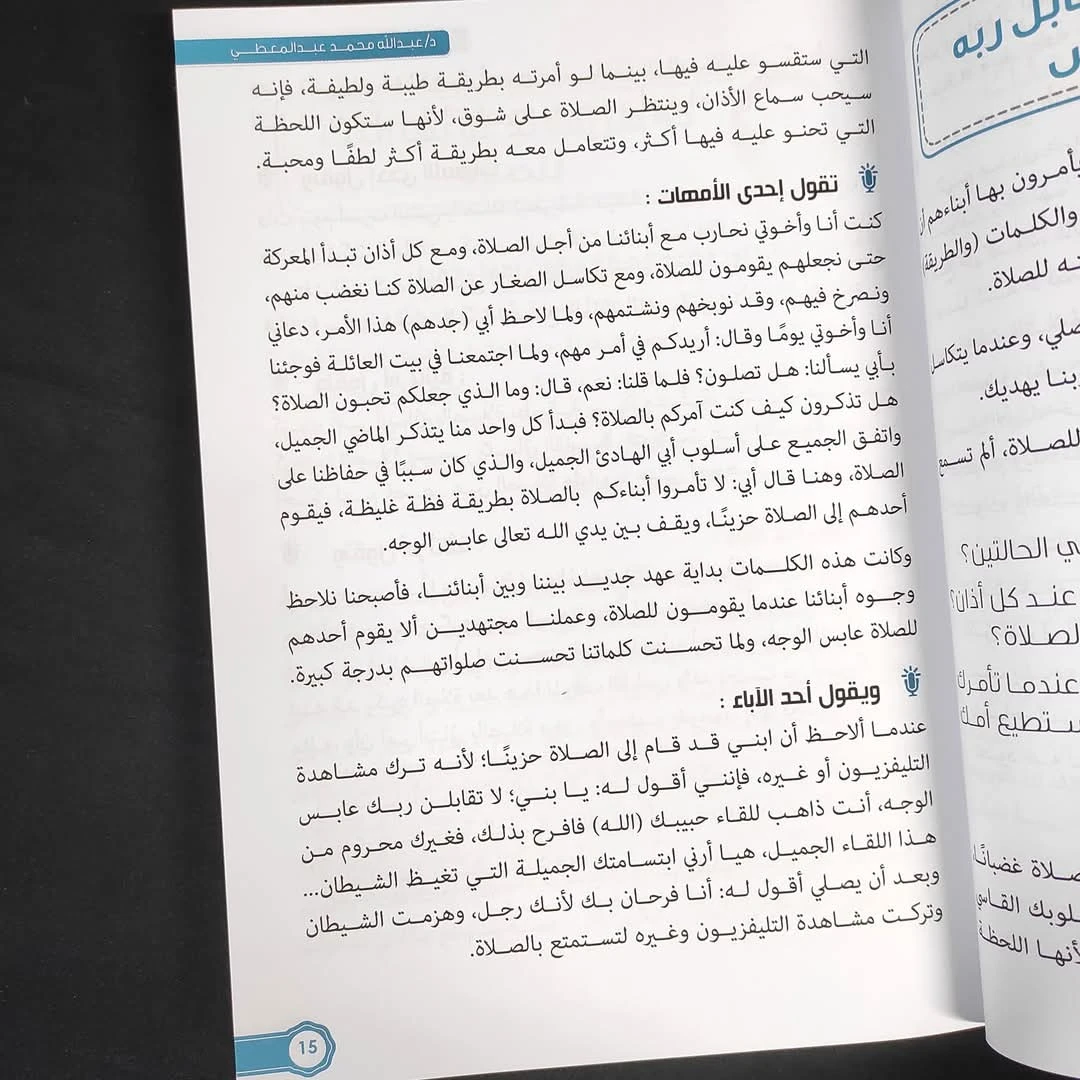 د/عبدالله محمد عبدالمعطي
التي ستقسو عليه فيها، بينما لو أمرته بطريقة طيبة ولطيفة، فإنه
سيحب سماع الأذان، وينتظر الصلاة على شوق، لأنها ستكون اللحظة
التي تحنو عليه فيها أكثر، وتتعامل معه بطريقة أكثر لطفًا ومحبة.
تقول إحدى الأمهات :
كنت أنا وأخوتي نحارب مع أبنائنا من أجل الصلاة، ومع كل أذان تبدأ المعركة
حتى نجعلهم يقومون للصلاة، ومع تكاسل الصغار عن الصلاة كنا نغضب منهم،
ونصرخ فيهم، وقد نوبخهم ونشتمهم، ولما لاحظ أبي (جدهم) هذا الأمر، دعاني
أنا وأخوتي يومًا وقال: أريدكم في أمر مهم، ولما اجتمعنا في بيت العائلة فوجئنا
بأبي يسألنا: هل تصلون؟ فلما قلنا: نعم، قال: وما الذي جعلكم تحبون الصلاة؟
هل تذكرون كيف كنت آمركم بالصلاة؟ فبدأ كل واحد منا يتذكر الماضي الجميل،
واتفق الجميع على أسلوب أبي الهادئ الجميل، والذي كان سببًا في حفاظنا على
الصلاة، وهنا قال أبي: لا تأمروا أبناءكم بالصلاة بطريقة فظة غليظة، فيقوم
أحدهم إلى الصلاة حزينًا، ويقف بين يدي الله تعالى عابس الوجه.
وكانت هذه الكلمات بداية عهد جديد بيننا وبين أبنائنا، فأصبحنا نلاحظ
وجوه أبنائنا عندما يقومون للصلاة، وعملنا مجتهدين ألا يقوم أحدهم
للصلاة عابس الوجه، ولما تحسنت كلماتنا تحسنت صلواتهم بدرجة كبيرة.
ويقول أحد الآباء :
عندما ألاحظ أن ابني قد قام إلى الصلاة حزينًا؛ لأنه ترك مشاهدة
التليفزيون أو غيره، فإنني أقول له: يا بني؛ لا تقابلن ربك عابس
الوجه، أنت ذاهب للقاء حبيبك (الله) فافرح بذلك، فغيرك محروم من
هذا اللقاء الجميل، هيا أرني ابتسامتك الجميلة التي تغيظ الشيطان...
وبعد أن يصلي أقول له: أنا فرحان بك لأنك رجل، وهزمت الشيطان
وتركت مشاهدة التليفزيون وغيره لتستمتع بالصلاة.
15
ربه
يأمرون بها أبناءهم
والكلمات (والطريقة)
للصلاة.
وعندما يتكاسل
ربنا يهديك.
للصلاة، ألم تسمع
الحالتين؟
عند كل أذان؟
الصلاة؟
عندما تأمرك
تستطيع أمك
غضبانًا
القاسي
اللحظة